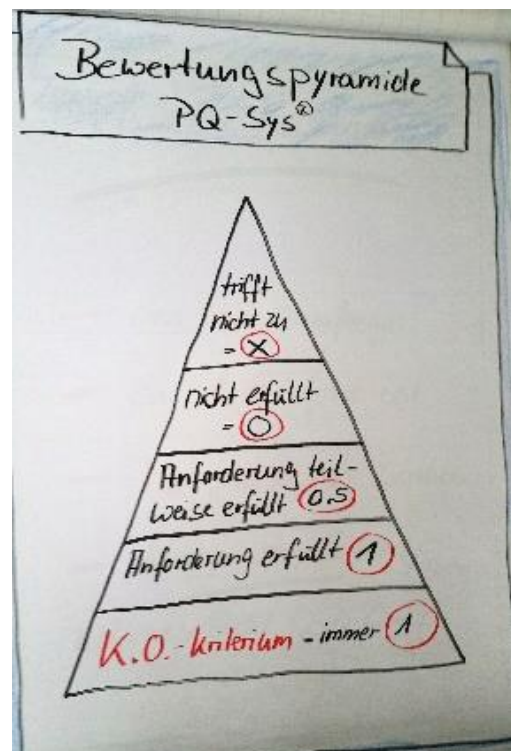 Bewertungspyramide
PQ-Sys®
trifft
nicht zu
= X
nicht erfüllt
= 0
Anforderung teil-
weise erfüllt 0.5
Anforderung erfüllt 1
K.O.-Kriterium - immer 1